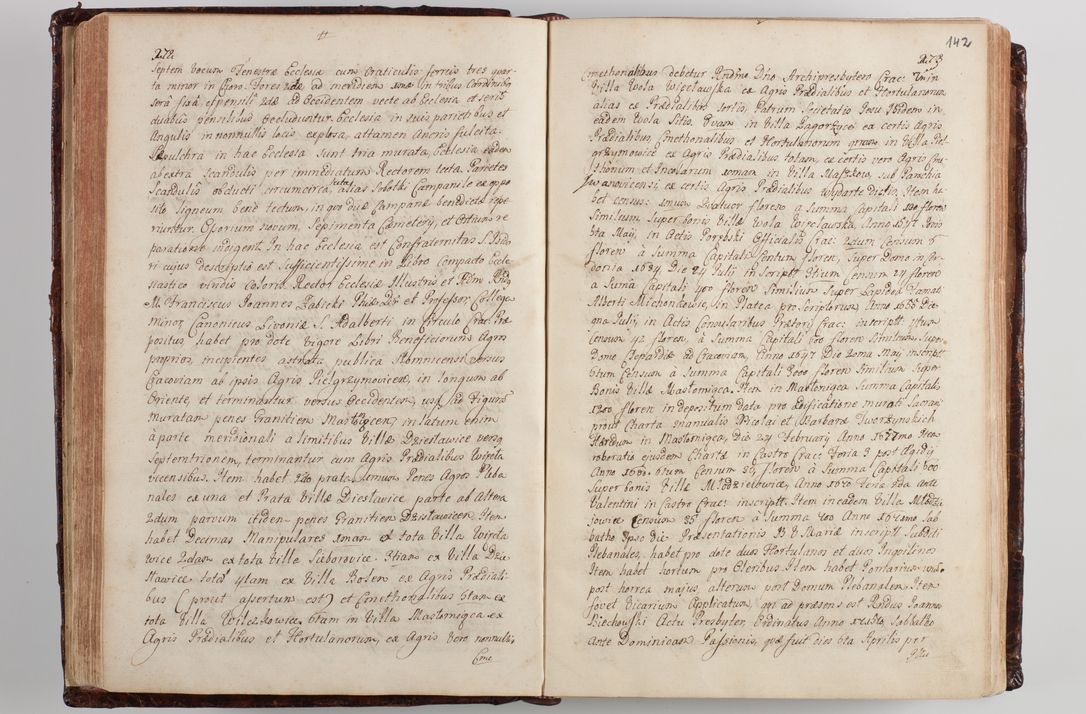 272.
Septem vocum Fenestræ Ecclesiæ cum Craticulis ferreis tres quar-
ta minor in Choro. Fores 2dæ ad meridiem una
sera fixa 2dæ ad Occidentem vecte ab Ecclesia et seris
duabus pensilibus occluduntur. Ecclesia in suis parietibus et
Angulis in nonnullis locis explora, attamen Ancris fulcita.
Sepulchra in hac Ecclesia sunt tria murata, Ecclesia eadem
ab extra Scandulis per immediatum Rectorem tecta Parietes
Scandulis obducti circumcirca, alias Sobotki Campanile ex oppo
sito ligneum bene tectum, in quo duæ Campanæ benedictæ repe-
riuntur. Osorium novum, Sepimenta Cæmetery, et Ostium re
paratione indigent. In hac Ecclesia est Confraternitas S. Isido-
ri cujus descriptio est sufficientissime in Libro Compacto Eccle-
siastico viridis coloris Rector Ecclesiæ Illustris et Adm Rndus
M. Franciscus Joannes Phiæ Dr et Professor College
minor, Canonicus Livoniæ S. Adalberti in Circulo Crac: Præ
positus habet pro dote vigore Libri Beneficiorum Agros
proprios incipientes a strata publica Slomnicensi versus
Cracoviam ab ipsis Agris Pielgrzymovicen, in longum ab
Oriente, et terminantur versus Occidentem, usq ad Figuram
muratam penes Granitiem in latum enim
à parte meridionali à limitibus Villæ Dzieslawice versq
Septemtrionem, terminantur cum Agris Prædialibus Więcla
vicensibus. Item habet 2do prata unum Penes Agros Pleba
nales ex una et Prata Villæ Dieslawice parte ab altera
2dum parvum itidem penes Granitiem Dzislawicen. Item
habet Decimas Manipulares 1mam ex tota Villa Więcla
wice 2dam ex tota Ville Suborovice 3tiam ex Villa Dzie
slawice tota 4tam ex Villa Bosen ex Agris Prædiali-
bus (prout assertum est) et Cmethonalibus 5tam ex
tota Villa Wilczkowice 6tam in Villa Maslomiąca ex
Agris Prædialibus et Hortulanorum, ex Agris vero nonnullis
Cme
142
273
Cmethonalibus debetur Rndmo Dno Archipresbytero Crac: 7m in
Villa Wola Więclawska ex Agris Prædialibus et Hortulanorum
alias ex Prædialibus sortis, Patrum Societatis Jesu Ibidem in
eadem Wola Sitis. 8vam in Villa Zagorzyce ex certis Agris
Prædialibus, Cmethonalibus et Hortulanorum 9nam in Villa Piel
grzymowice ex Agris Prædialibus totam, ex certis vero Agris Cme
thonum et Incolarum 10mam in Villa sub Parochia
Iwanovicensi, ex certis Agris Prædialibus Wydarte dictis. Item ha
bet census: 1mum Quatuor floreno a Summa Capitali 120 floren
Similium Super bonis Villæ Wola Więclawska, Anno 1547 Die
6ta Maij, in Actis Porębski Officialis Crac: 2dum Censum 6
floren à Summa Capitali Centum floren, Super Domo in for
doria 1634 Die 24 Julij inscript. 3tium Censum 24 floren
a Suma Capitali 400 floren Similium Super Lapidea Famat
Alberti Michonkowic, in Platea pro Scriptorum, Anno 1635 Die
9na Julij, in Actis Consularibus Prætorij Crac: inscript. 4tum
Censum 42 floren, à Summa Capitali 600 floren Similium, Super
Domo Clepardiæ ad Cracoviam, Anno 1647 Die 20ma Maij inscript
5tum Censum à Summa Capitali 3000 floren Similium Super
Bonis Villæ Maslomiąca. Item in Maslomiąca Summa Capitalis
1200 floren in depositum data pro Ædificatione murati Sacrarij
prout Charta manualis Nicolai et Barbaræ Tworzynskich
Hæredum in Maslomiąca, Die 24 Februarij Anno 1657mo Item
roboratio ejusdem Chartæ in Castro Crac: Feria 3 post Ægidij
Anno 1660. 6tum Censum 35, floren à Summa Capitali 600
Super bonis Villæ Mlodziejowice, Anno 1670 Feria 2da ante
Valentini in Castro Crac: inscript. Item in eadem Villa Mlodzie
jowice Censum 35 floren à Summa 700 Anno 167 Sab
batho Ipso die Præsentationis B. V. Mariæ inscript Subditi
Plebanales, habet pro dote duos Hortulanos et duos Inquilinos
Item habet hortum pro Oleribus Item habet Pomarium unum
post horrea majus alterum post Domum Plebanalem. Item
fovet Vicarium Applicatum, qui ad præsens est Rndus Joannes
Biechowski Actu Presbyter Ordinatus Anno Sabbatho
Ante Dominicam Passionis, quæ fuit dies 6ta Aprilis per
Illu